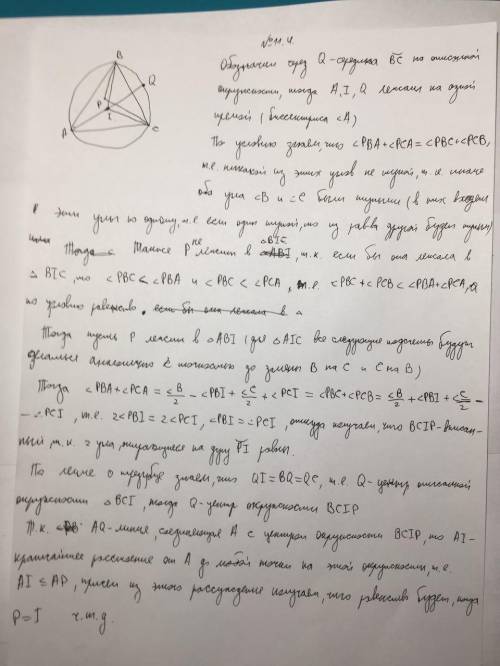 №11.4.
B
Q
P
I
A
C
Обозначим через Q - середина BC на описанной
окружности, тогда A, I, Q лежат на одной
прямой (биссектриса ∠A)
По условию знаем, что ∠PBA+∠PCA=∠PBC+∠PCB,
т.е. никакой из этих углов не тупой, т.к. иначе
оба угла ∠B и ∠C были тупыми (в них входят
эти углы по одному, т.е. если один тупой, то из рав-ва другой будет тупым)
Также P не лежит в △BIC, т.к. если бы она лежала в
△BIC, то ∠PBC < ∠PBA и ∠PBC < ∠PCA, т.е. ∠PBC+∠PCB < ∠PBA+∠PCA, а
по условию равенство.
Тогда пусть P лежит в △ABI (для △AIC все следующие подсчеты будут
делаться аналогично с точностью до замены B на C и C на B)
Тогда ∠PBA+∠PCA = ∠B/2 - ∠PBI + ∠C/2 + ∠PCI = ∠PBC+∠PCB = ∠B/2 + ∠PBI + ∠C/2 -
- ∠PCI, т.е. 2∠PBI = 2∠PCI, ∠PBI = ∠PCI, откуда получаем, что BCIP-вписан-
ный, т.к. 2 угла, опирающиеся на дугу PI равны.
По лемме о трезубце знаем, что QI=BQ=QC, т.е. Q-центр описанной
окружности △BCI, тогда Q-центр окружности BCIP
Т.к. AQ-линия, соединяющая A с центром окружности BCIP, то AI-
кратчайшее расстояние от A до любой точки на этой окружности, т.е.
AI ≤ AP, причем из этого рассуждения получаем, что равенство будет, когда
P=I ч.т.д.